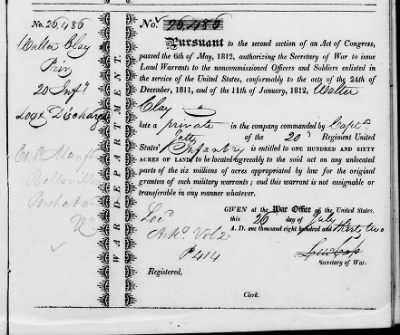 No. 26,486
Walter Clay
Priv
20 Inf.y
Lost Discharge
WAR DEPARTMENT.
No. 26,486
Pursuant to the second section of an Act of Congress,
passed the 6th of May, 1812, authorizing the Secretary of War to issue
Land Warrants to the noncommissioned Officers and Soldiers enlisted in
the service of the United States, conformably to the acts of the 24th of
December, 1811, and of the 11th of January, 1812, Walter
Clay
late a private in the company commanded by Capt.
of the 20th Regiment United
States' Infantry is entitled to ONE HUNDRED AND SIXTY
ACRES OF LAND to be located agreeably to the said act on any unlocated
parts of the six millions of acres appropriated by law for the original
grantees of such military warrants; and this warrant is not assignable or
transferable in any manner whatever.
GIVEN at the War Office of the United States,
this 26 day of July
A. D. one thousand eight hundred and thirty two
Lew Cass
Secretary of War.
Loc
Arks Vol 2
P 414
Registered.
Clerk.